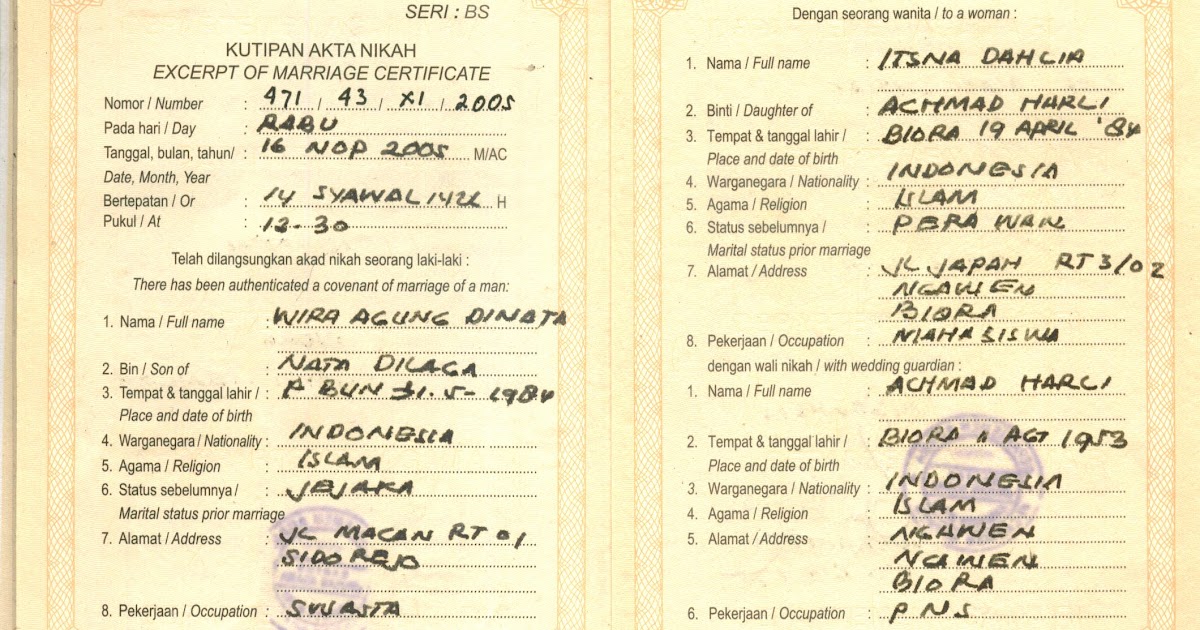 SERI : BS
KUTIPAN AKTA NIKAH
EXCERPT OF MARRIAGE CERTIFICATE
Nomor / Number : 471 / 43 / XI / 2005
Pada hari / Day : RABU
Tanggal, bulan, tahun/ : 16 NOP 2005 M/AC
Date, Month, Year
Bertepatan / Or : 14 SYAWAL 1426 H
Pukul / At : 12-30
Telah dilangsungkan akad nikah seorang laki-laki :
There has been authenticated a covenant of marriage of a man:
1. Nama / Full name : WIRA AGUNG DINATA
2. Bin / Son of : NATA DILAGA
3. Tempat & tanggal lahir / : P BUN 31.5-1984
Place and date of birth
4. Warganegara / Nationality : INDONESIA
5. Agama / Religion : ISLAM
6. Status sebelumnya / : JEJAKA
Marital status prior marriage
7. Alamat / Address : JL MACAN RT 01
SIDOREJO
8. Pekerjaan / Occupation : SWASTA
Dengan seorang wanita / to a woman :
1. Nama / Full name : ITSNA DAHLIA
2. Binti / Daughter of : ACHMAD HARLI
3. Tempat & tanggal lahir / : BlORA 19 APRIL '84
Place and date of birth
4. Warganegara / Nationality : INDONESIA
5. Agama / Religion : ISLAM
6. Status sebelumnya / : PERAWAN
Marital status prior marriage
7. Alamat / Address : JL JAPAH RT 3/02
NGAWEN
BlORA
8. Pekerjaan / Occupation : MAHASISWA
dengan wali nikah / with wedding guardian :
1. Nama / Full name : ACHMAD HARLI
2. Tempat & tanggal lahir / : BlORA 11 AGT 1953
Place and date of birth
3. Warganegara / Nationality : INDONESIA
4. Agama / Religion : ISLAM
5. Alamat / Address : NGAWEN
NGAWEN
BlORA
6. Pekerjaan / Occupation : PNS